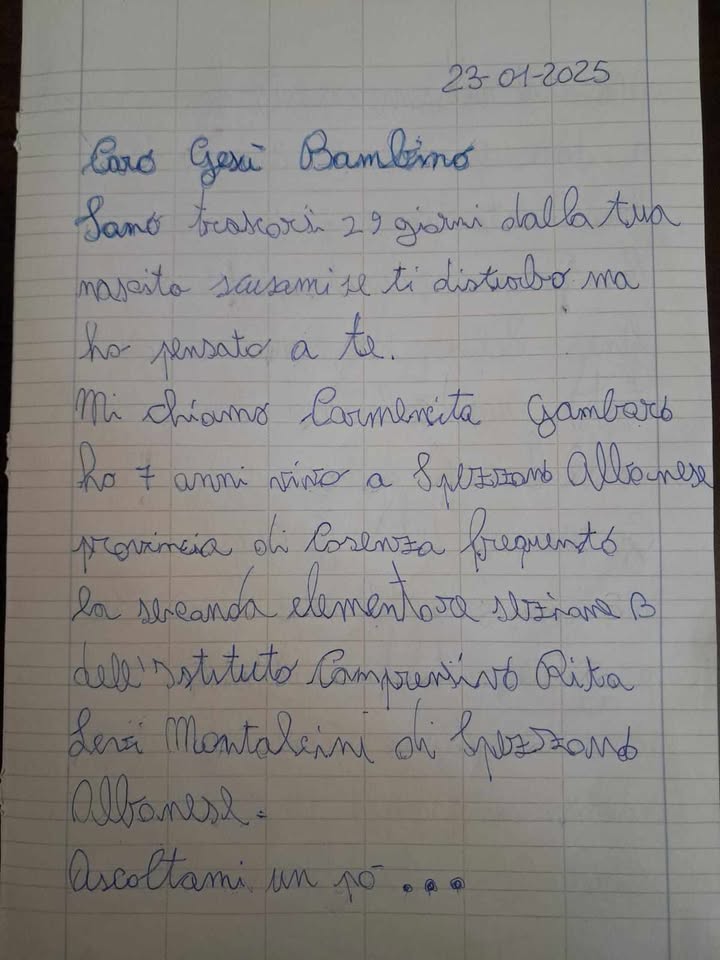 23-01-2025
Caro Gesù Bambino
Sono trascorsi 29 giorni dalla tua
nascita scusami se ti disturbo ma
ho pensato a te.
Mi chiamo Carmencita Gambaro
ho 7 anni vivo a Spezzano Albanese
provincia di Cosenza frequento
la seconda elementare sezione B
dell'Istituto Comprensivo Rita
Levi Montalcini di Spezzano
Albanese.
Ascoltami un pò...